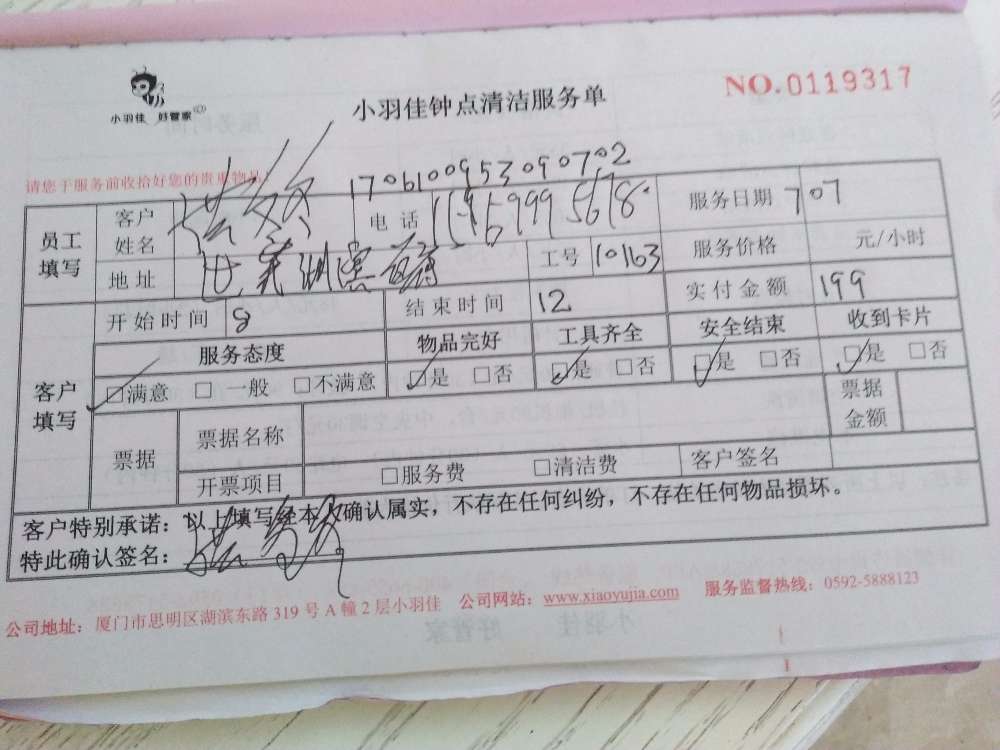 小羽佳 好管家
小羽佳钟点清洁服务单
NO.0119317
请您于服务前收拾好您的贵重物品!
1706100953090702
员工填写 客户姓名 电话 服务日期 707
地址 工号 10163 服务价格 元/小时
客户填写 开始时间 8 结束时间 12 实付金额 199
服务态度 物品完好 工具齐全 安全结束 收到卡片
☑满意 □一般 □不满意 ☑是 □否 ☑是 □否 ☑是 □否 ☑是 □否
票据 票据名称 票据金额
开票项目 □服务费 □清洁费 客户签名
客户特别承诺:以上填写经本人确认属实,不存在任何纠纷,不存在任何物品损坏。
特此确认签名:
公司地址:厦门市思明区湖滨东路319号A幢2层小羽佳 公司网站:www.xiaoyujia.com 服务监督热线:0592-5888123